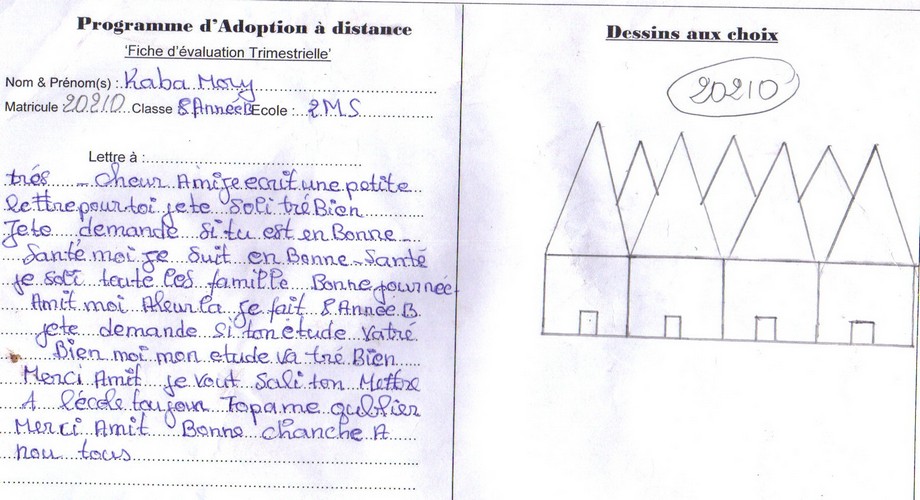 Programme d'Adoption à distance
'Fiche d'évaluation Trimestrielle'
Nom & Prénom(s) : Kaba Mory
Matricule 20210 Classe 8 Année B Ecole : 2MS
Lettre à :
trés cheur Ami je ecrit une petite
lettre pour toi je te Soli tré Bien
Je te demande si tu est en Bonne
Santé moi je Suit en Bonne Santé
je soli toute les famille Bonne journée
Amit moi Aleur la je fait 8 Année B
je te demande Si ton etude va tré
Bien moi mon etude va tré Bien
Merci Amit je vout Sali ton Mettre
A l'école toujour Topa me oublier
Merci Amit Bonne chanche A
nou tous
Dessins aux choix
20210